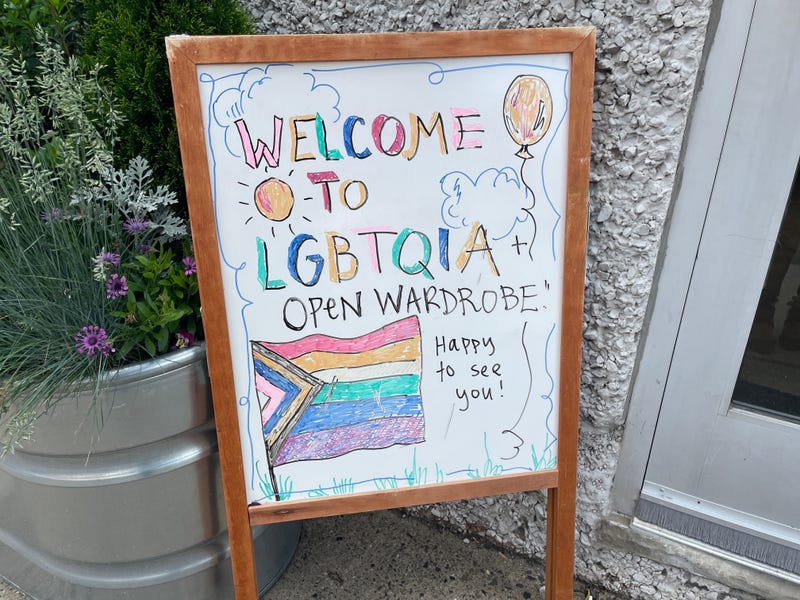 WELCOME
TO
LGBTQIA+
OPEN WARDROBE!
Happy
to see
you!